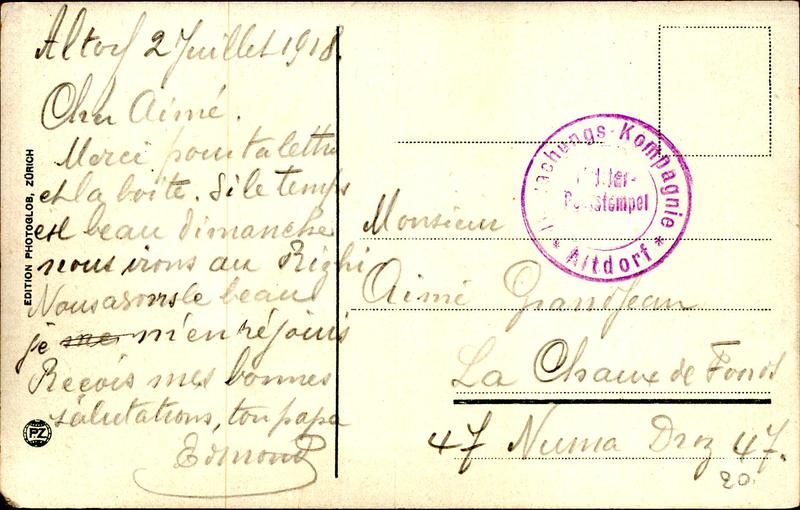 Altorf 2 Juillet 1918.
Cher Aimé.
Merci pour ta lettre
et la boîte. Si le temps
est beau dimanche
nous irons au Righi
Nous avons le beau
je m'en réjouis
Reçois mes bonnes
salutations, ton papa
Edmond
EDITION PHOTOGLOB, ZÜRICH
PZ
Kompagnie
Poststempel
* Altdorf *
Monsieur
Aimé Grandjean
La Chaux de Fonds
47 Numa Droz 47.
20.